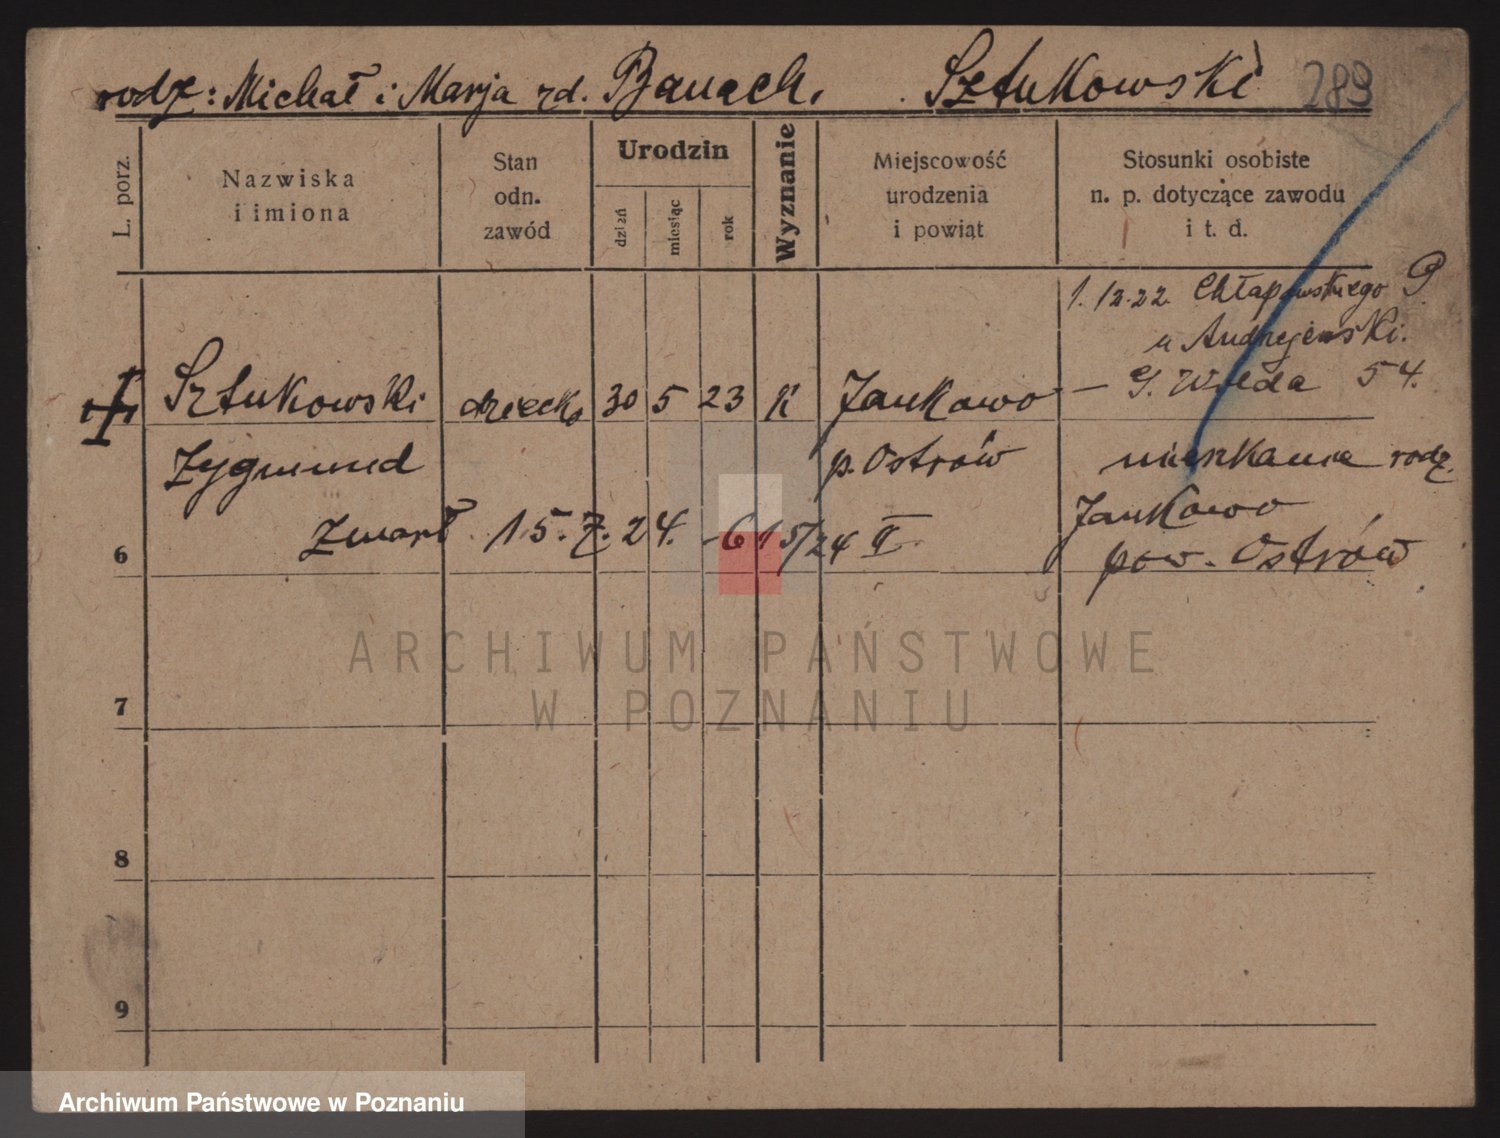 rodz: Michał i Marja zd. Banach. Sztukowski 289
L. porz.
Nazwiska
i imiona
Stan
odn.
zawód
Urodzin
dzień
miesiąc
rok
Wyznanie
Miejscowość
urodzenia
i powiat
Stosunki osobiste
n. p. dotyczące zawodu
i t. d.
1. 12. 22. Chłapowskiego 9
u Andrzejewski.
Sztukowski dziecko 30 5 23 K Jankowo — G. Wilda 54.
Zygmund p. Ostrów mieszkanie rodz.
Jankowo
Zmarł 15. 7. 24. 615/24 II
pow. Ostrów
6
7
8
9
ARCHIWUM PAŃSTWOWE
W POZNANIU
Archiwum Państwowe w Poznaniu